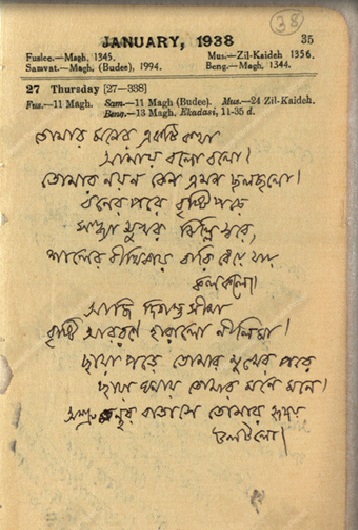 38
JANUARY, 1938 35
Fuslee.—Magh. 1345. Mus.—Zil-Kaideh 1356.
Samvat.—Magh. (Budee), 1994. Beng.—Magh. 1344.
27 Thursday [27—338]
Fus.—11 Magh. Sam.—11 Magh (Budee). Mus.—24 Zil-Kaideh.
Beng.—13 Magh. Ekadasi, 11-35 d.
তোমার মনের একটি কথা
আমায় বলো বলো।
তোমার নয়ন কেন এমন ছলছলো।
বনের পরে বৃষ্টি পড়ে
সন্ধ্যা মুখর ঝিল্লি স্বরে,
শালের বীথিকায় বারি বেয়ে যায়
কলকলো।
আজি দিগন্ত সীমা
বৃষ্টি আবরণে হারালো নীলিমা।
ছায়া পড়ে তোমার মুখের পরে
ছায়া ঘনায় তোমার মনে মনে।
অশ্রু মন্থর বাতাসে তোমার হৃদয়
টলটলো।